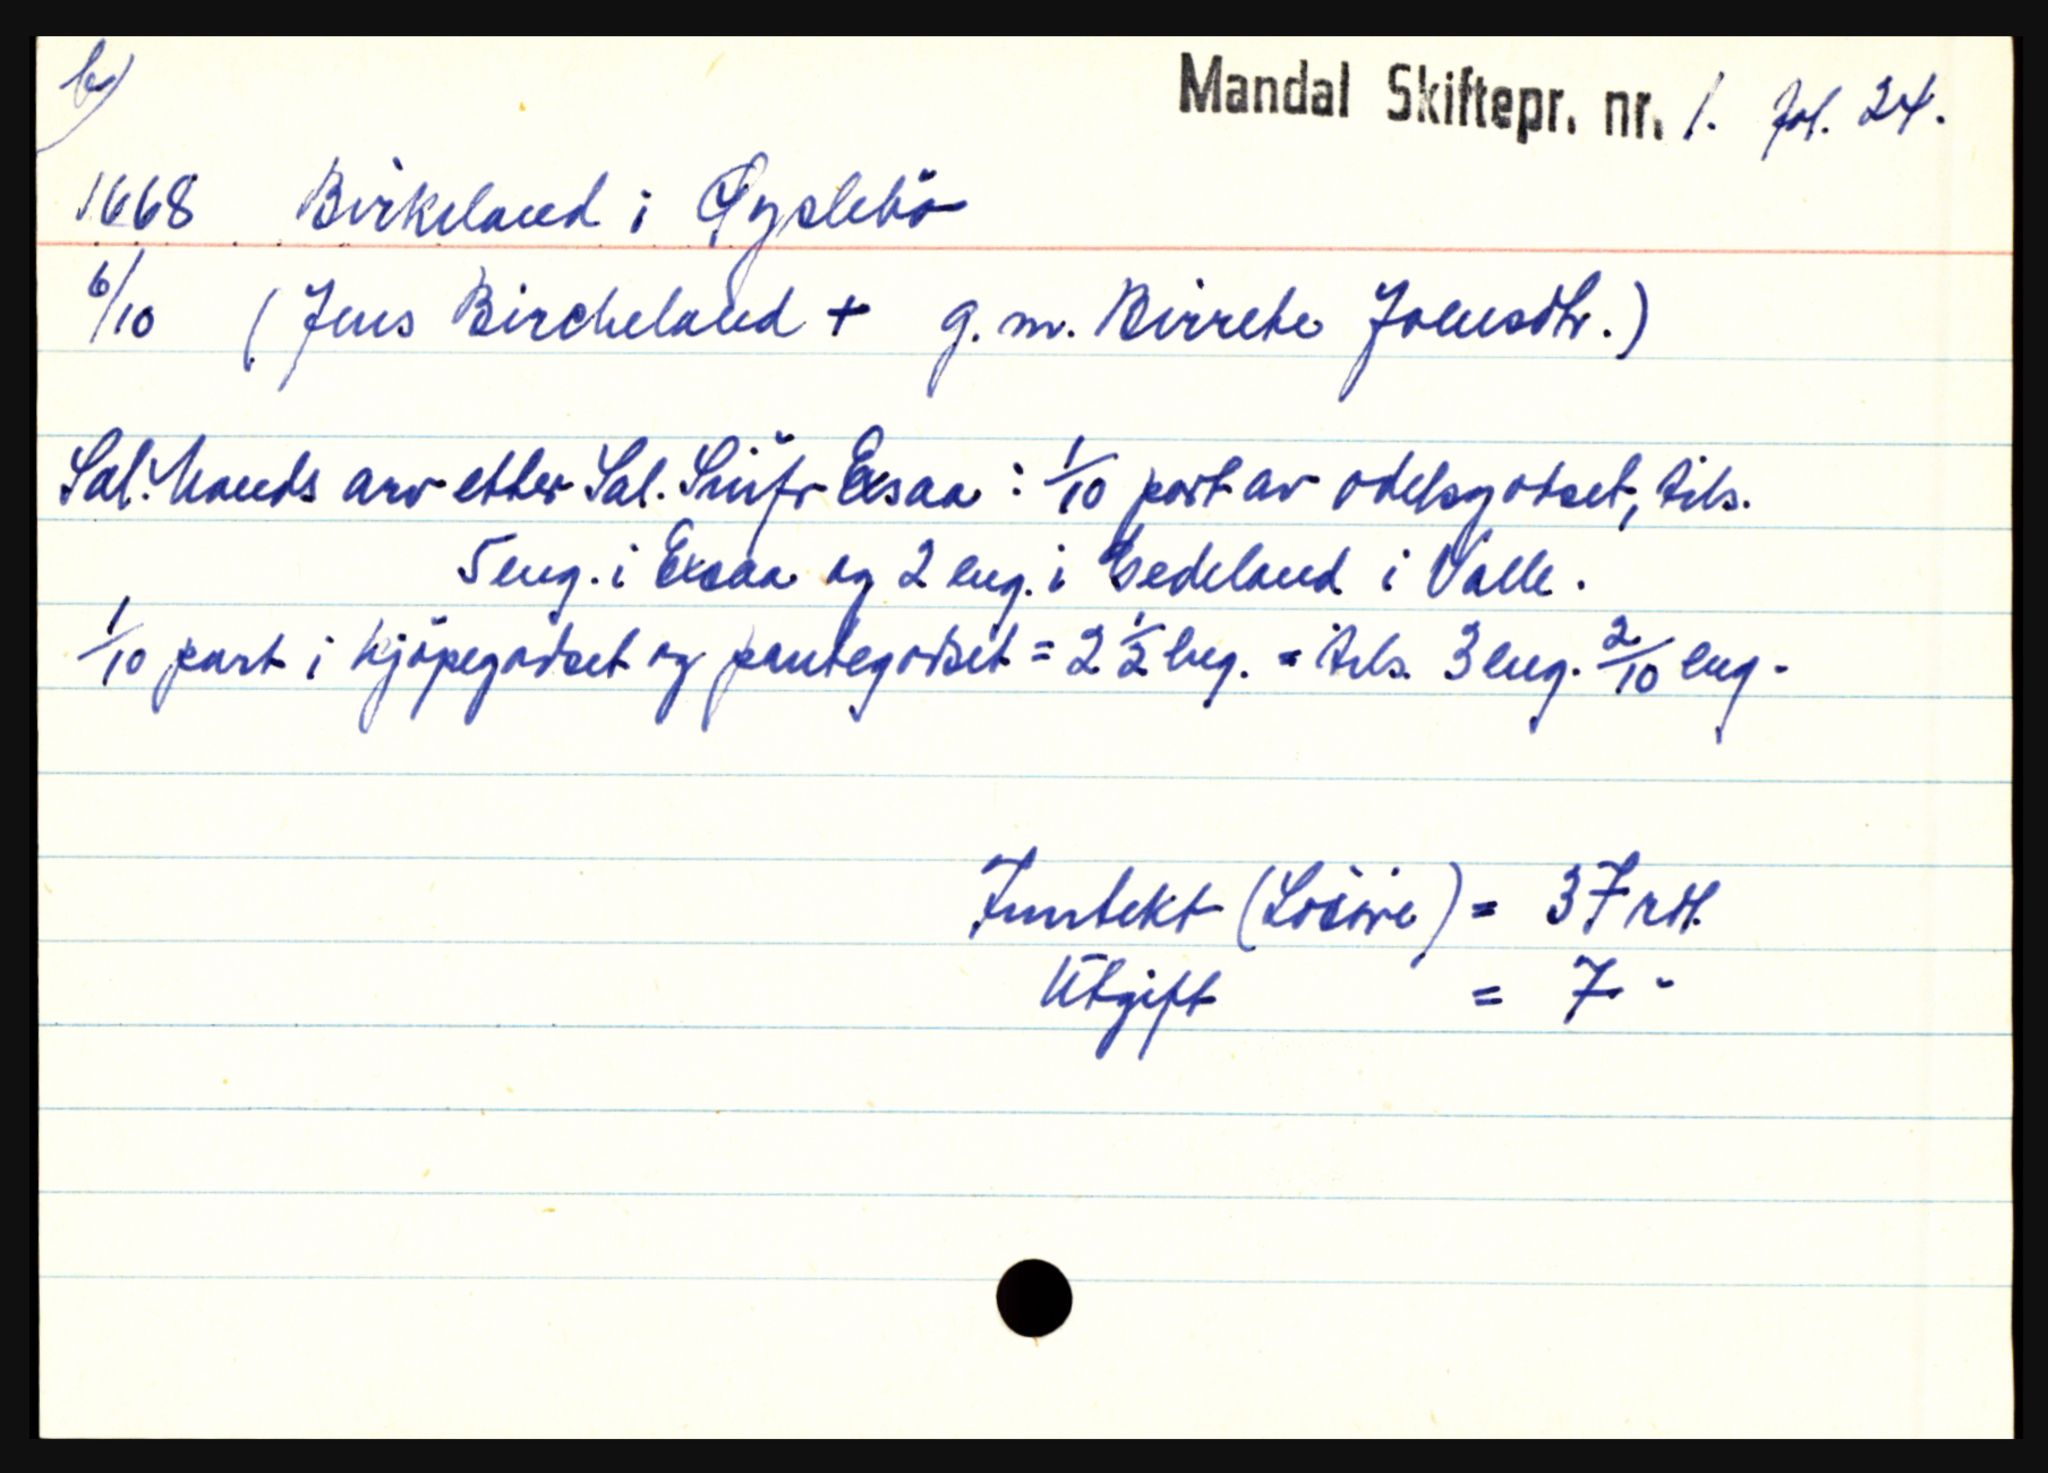 b)
Mandal Skiftepr. nr. 1. fol. 24.
1668 Birkeland i Øyslebö
6/10 (Jens Bircheland + g. m. Birrete Joensdtr.)
Sal. Mands arv etter Sal. Siufr Exsaa : 1/10 part av odelsgodset, tils.
5 eng. i Exsaa og 2 eng. i Hedeland i Valle.
1/10 part i kjöpegodset og pantegodset = 2 1/2 eng. = tils. 3 eng. 2/10 eng.
Inntekt (Lösöre) = 37 rdl.
Utgift = 7 "